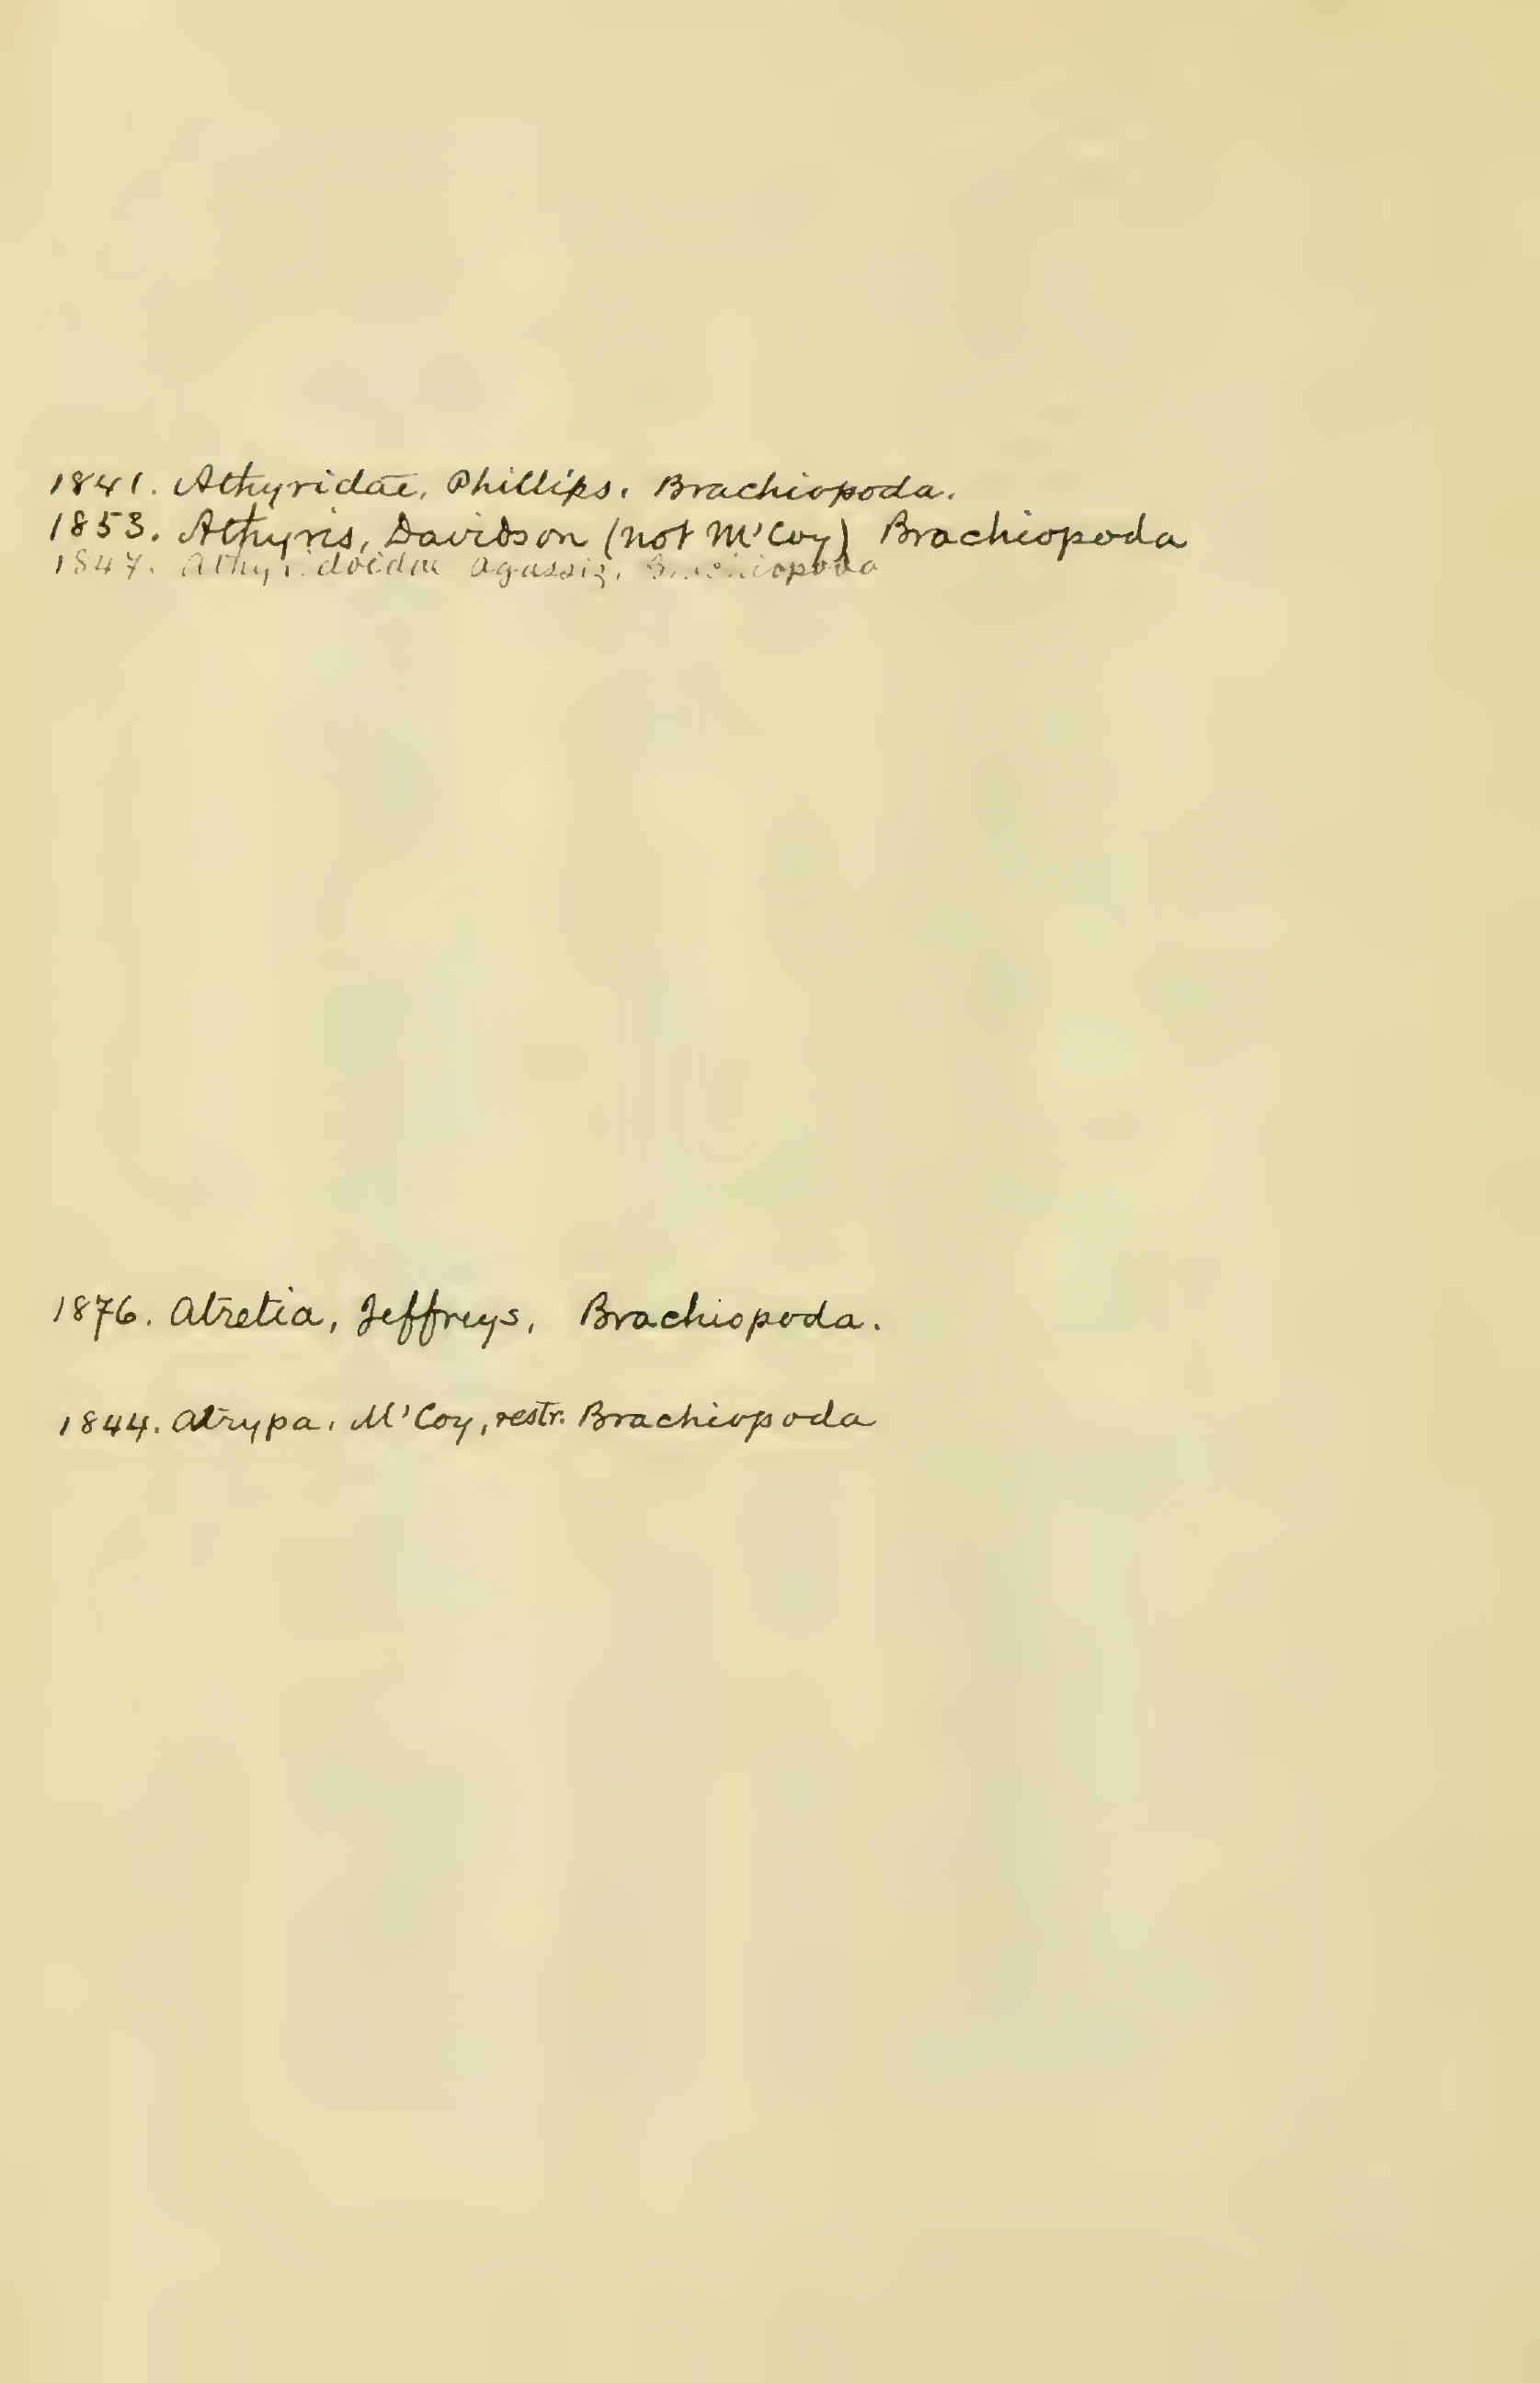 1841. Athyridae, Phillips. Brachiopoda.
1853. Athyris, Davidson (not M'Coy) Brachiopoda
1847. Agassiz. Brachiopoda
1876. Atretia, Jeffreys, Brachiopoda.
1844. Atrypa. M'Coy, restr. Brachiopoda